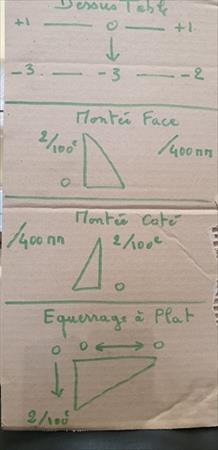 Dessus Table
+1 — 0 — +1
-3 — -3 — -2
Montée Face
2/100è
/400mm
0
Montée Coté
/400mm
2/100è
0
Equerrage à Plat
0 0 0
2/100è